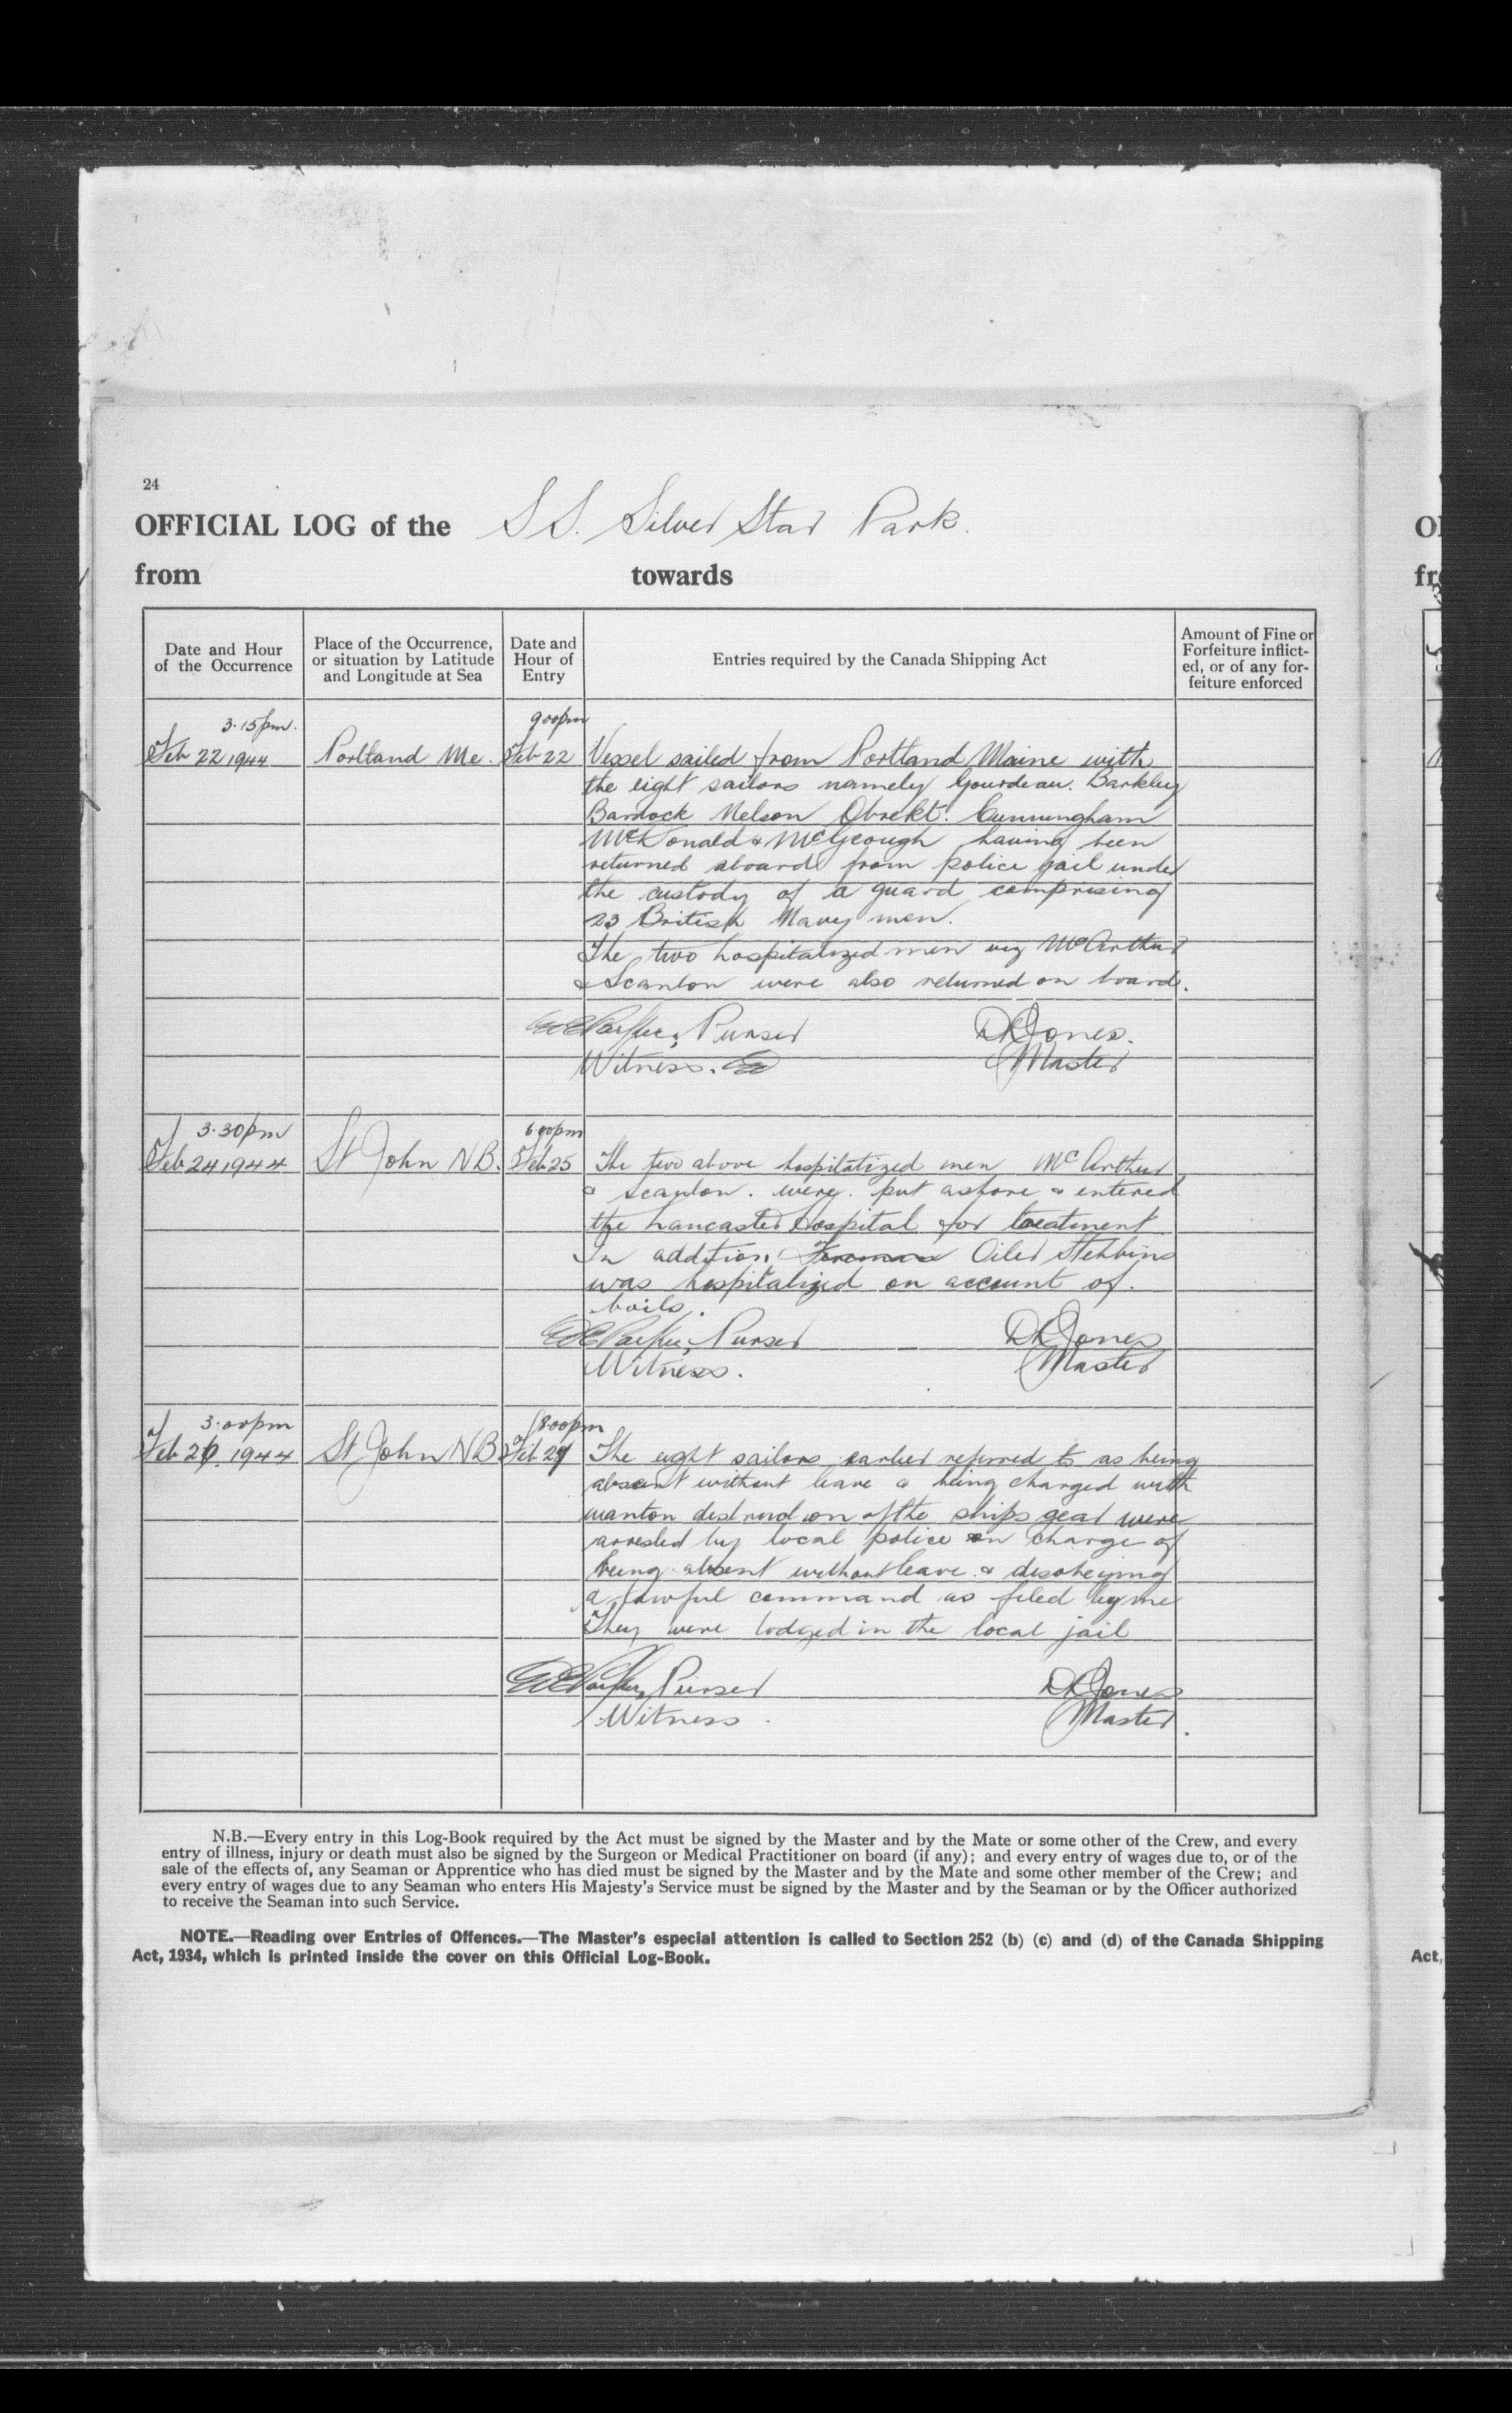 24
OFFICIAL LOG of the S S. Silver Star Park.
from towards
Date and Hour of the Occurrence
Place of the Occurrence, or situation by Latitude and Longitude at Sea
Date and Hour of Entry
Entries required by the Canada Shipping Act
Amount of Fine or Forfeiture inflicted, or of any forfeiture enforced
3.15pm. 9.00pm
Feb 22 1944 Portland Me. Feb 22 Vessel sailed from Portland Maine with
the eight sailors namely Gourdeau. Barkley
Nelson Cunningham
McDonald & McGeough having been
returned aboard from police jail under
the custody of a guard comprising
23 British Navy men.
The two hospitalized men viz McArthur
& Scanlon were also returned on board.
Purser DRJones.
Witness. Master
3.30pm 6.00pm
Feb 24 1944 St John N B. Feb 25 The two above hospitalized men McArthur
& Scanlon. were. put ashore & entered
the Lancaster Hospital for treatment
In addition Oiler Stebbins
was hospitalized on account of.
boils.
Purser DRJones
Witness. Master
3.00pm 8.00pm
Feb 1944 St John N B Feb The eight sailors earlier referred to as being
absent without leave & being charged with
wanton destruction of the ships gear were
arrested by local police on charge of
being absent without leave & disobeying
a lawful command as filed by me
They were lodged in the local jail
Purser DRJones
Witness. Master.
N.B.—Every entry in this Log-Book required by the Act must be signed by the Master and by the Mate or some other of the Crew, and every
entry of illness, injury or death must also be signed by the Surgeon or Medical Practitioner on board (if any); and every entry of wages due to, or of the
sale of the effects of, any Seaman or Apprentice who has died must be signed by the Master and by the Mate and some other member of the Crew; and
every entry of wages due to any Seaman who enters His Majesty's Service must be signed by the Master and by the Seaman or by the Officer authorized
to receive the Seaman into such Service.
NOTE.—Reading over Entries of Offences.—The Master's especial attention is called to Section 252 (b) (c) and (d) of the Canada Shipping
Act, 1934, which is printed inside the cover on this Official Log-Book.
Act,